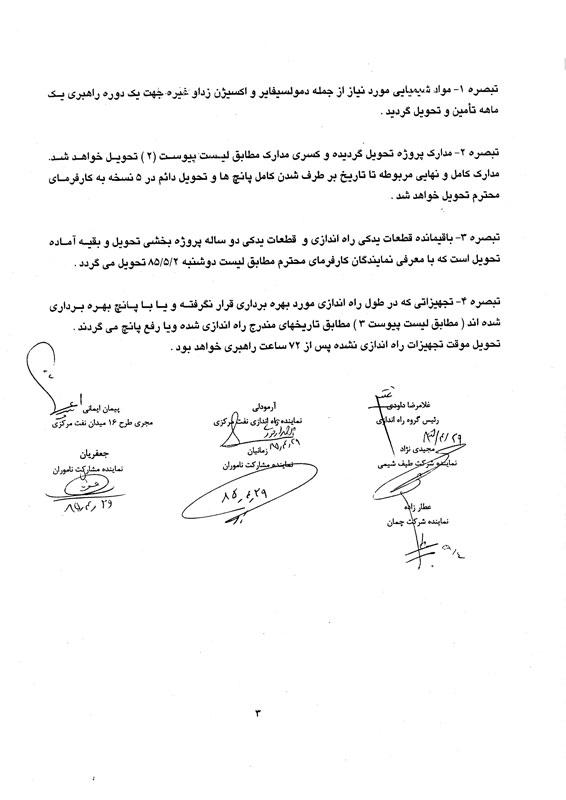 تبصره ۱- مواد شیمیایی مورد نیاز از جمله دمولسیفایر و اکسیژن زداو غیره جهت یک دوره راهبری یک
ماهه تأمین و تحویل گردید .
تبصره ۲- مدارک پروژه تحویل گردیده و کسری مدارک مطابق لیست پیوست (۲) تحویل خواهد شد.
مدارک کامل و نهایی مربوطه تا تاریخ بر طرف شدن کامل پانچ ها و تحویل دائم در ۵ نسخه به کارفرمای
محترم تحویل خواهد شد .
تبصره ۳- باقیمانده قطعات یدکی راه اندازی و قطعات یدکی دو ساله پروژه بخشی تحویل و بقیه آماده
تحویل است که با معرفی نمایندگان کارفرمای محترم مطابق لیست دوشنبه ۸۵/۵/۲ تحویل می گردد .
تبصره ۴- تجهیزاتی که در طول راه اندازی مورد بهره برداری قرار نگرفته و یا با پانچ بهره برداری
شده اند ( مطابق لیست پیوست ۳ ) مطابق تاریخهای مندرج راه اندازی شده ویا رفع پانچ می گردند .
تحویل موقت تجهیزات راه اندازی نشده پس از ۷۲ ساعت راهبری خواهد بود .
غلامرضا داودی
رئیس گروه راه اندازی
آرمودلی
نماینده راه اندازی نفت مرکزی
پیمان ایمانی
مجری طرح ۱۶ میدان نفت مرکزی
مجیدی نژاد
نماینده شرکت طیف شیمی
زمانیان
نماینده مشارکت ناموران
۸۵٫۴٫۲۹
جعفریان
نماینده مشارکت ناموران
۸۵٫۴٫۲۹
عطار زاده
نماینده شرکت چمان
۳